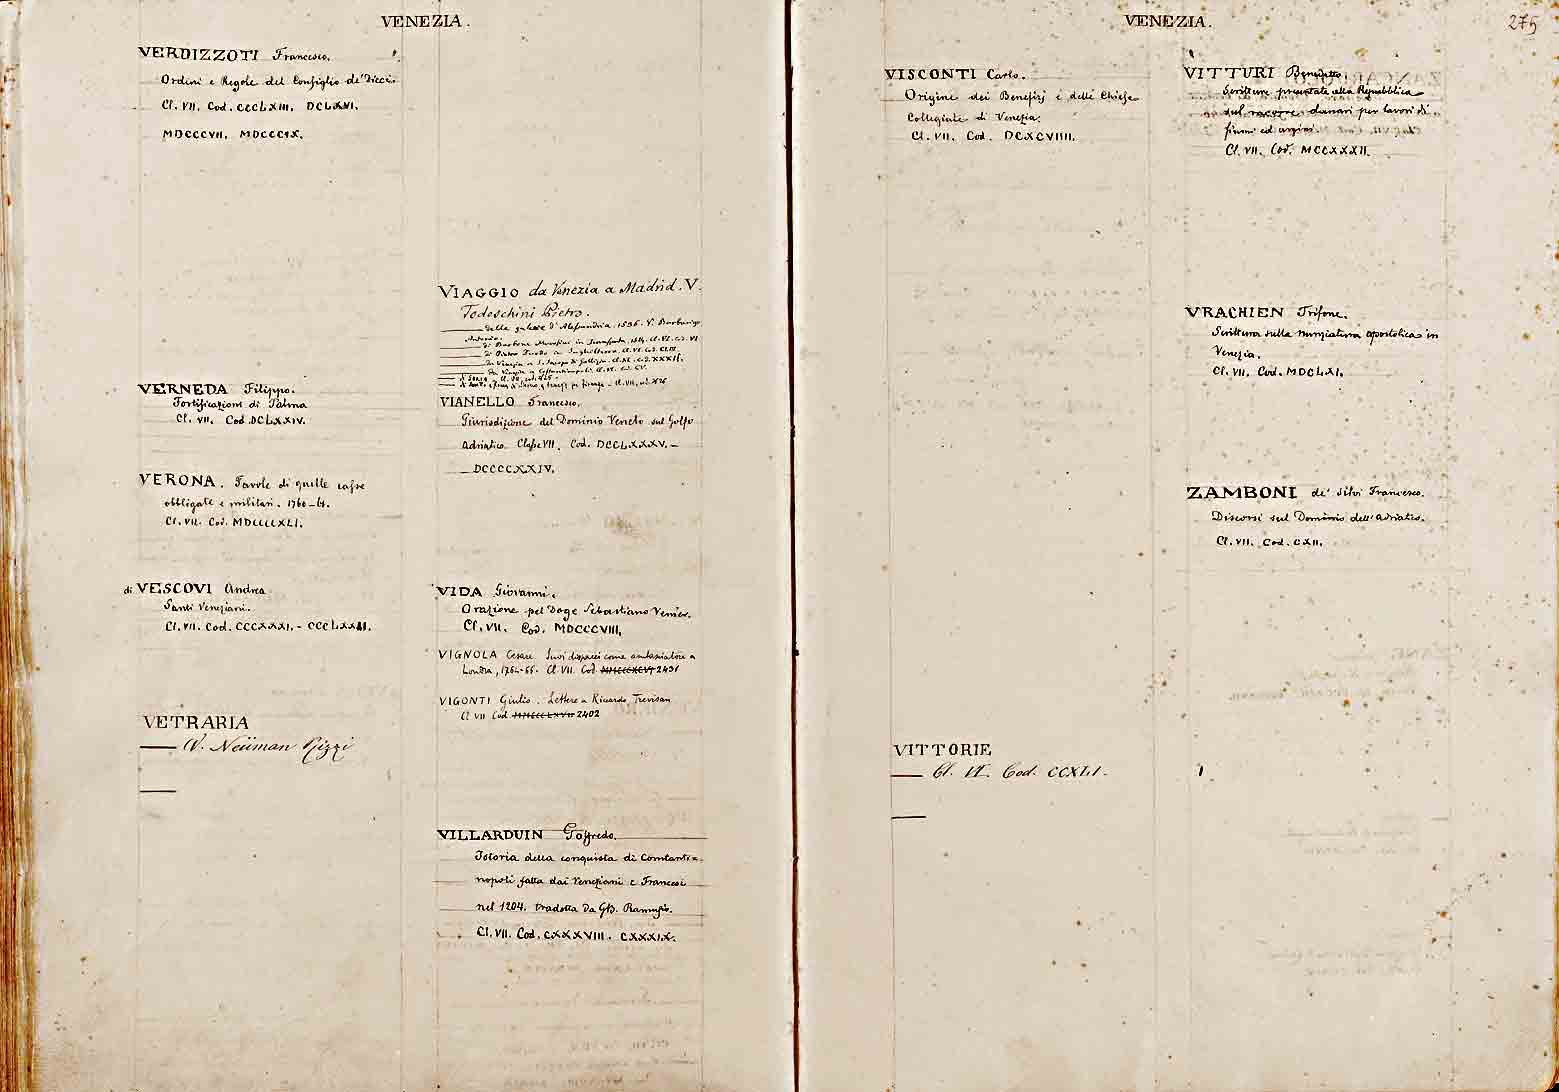 VENEZIA.
VERDIZZOTI Francesco.
Ordini e Regole del Consiglio de' Dieci.
Cl. VII. Cod. CCCLXIII. DCLXVI.
MDCCCVII. MDCCCIX.
VERNEDA Filippo.
Fortificazioni di Palma
Cl. VII. Cod. DCLXXIV.
VERONA. Tavole di quelle casse
obbligate e militari. 1760-61.
Cl. VII. Cod. MDCCCCXLI.
di VESCOVI Andrea
Santi Veneziani.
Cl. VII. Cod. CCCXXXI. - CCCLXXII.
VETRARIA
— V. Neüman Rizzi
—
VIAGGIO da Venezia a Madrid. V.
Tedeschini Pietro.
— delle galere d'Alessandria. 1596. V. Barbarigo
Antonio.
VIANELLO Francesco.
Giurisdizione del Dominio Veneto sul Golfo
Adriatico Classe VII. Cod. DCCLXXXV. —
— DCCCCXXIV.
VIDA Giovanni.
Orazione pel Doge Sebastiano Venier.
Cl. VII. Cod. MDCCCVIII.
VIGNOLA Cesare. Suoi dispacci come ambasciatore a
Londra, 1764-66. Cl. VII. Cod. 2491
VIGONTI Giulio. Lettere a Riccardo Trevisan
Cl VII Cod 2402
VILLARDUIN Goffredo.
Istoria della conquista di Costanti=
nopoli fatta dai Veneziani e Francesi
nel 1204. tradotta da GB. Ramusio.
Cl. VII. Cod. CXXXVIII. CXXXIX.
VENEZIA.
275
VISCONTI Carlo.
Origine dei Benefizj e delle Chiese
Collegiate di Venezia.
Cl. VII. Cod. DCXCVIIII.
VITTORIE
— Cl. VI. Cod. CCXLI.
—
VITTURI Benedetto.
Scritture presentate alla Repubblica
sul danari per lavori di
fiumi ed argini.
Cl. VII. Cod. MCCXXXII.
VRACHIEN Trifone.
Scrittura sulla nunziatura apostolica in
Venezia.
Cl. VII. Cod. MDCLXI.
ZAMBONI de' Silvi Francesco.
Discorsi sul Dominio dell'Adriatico.
Cl. VII. Cod. CXII.